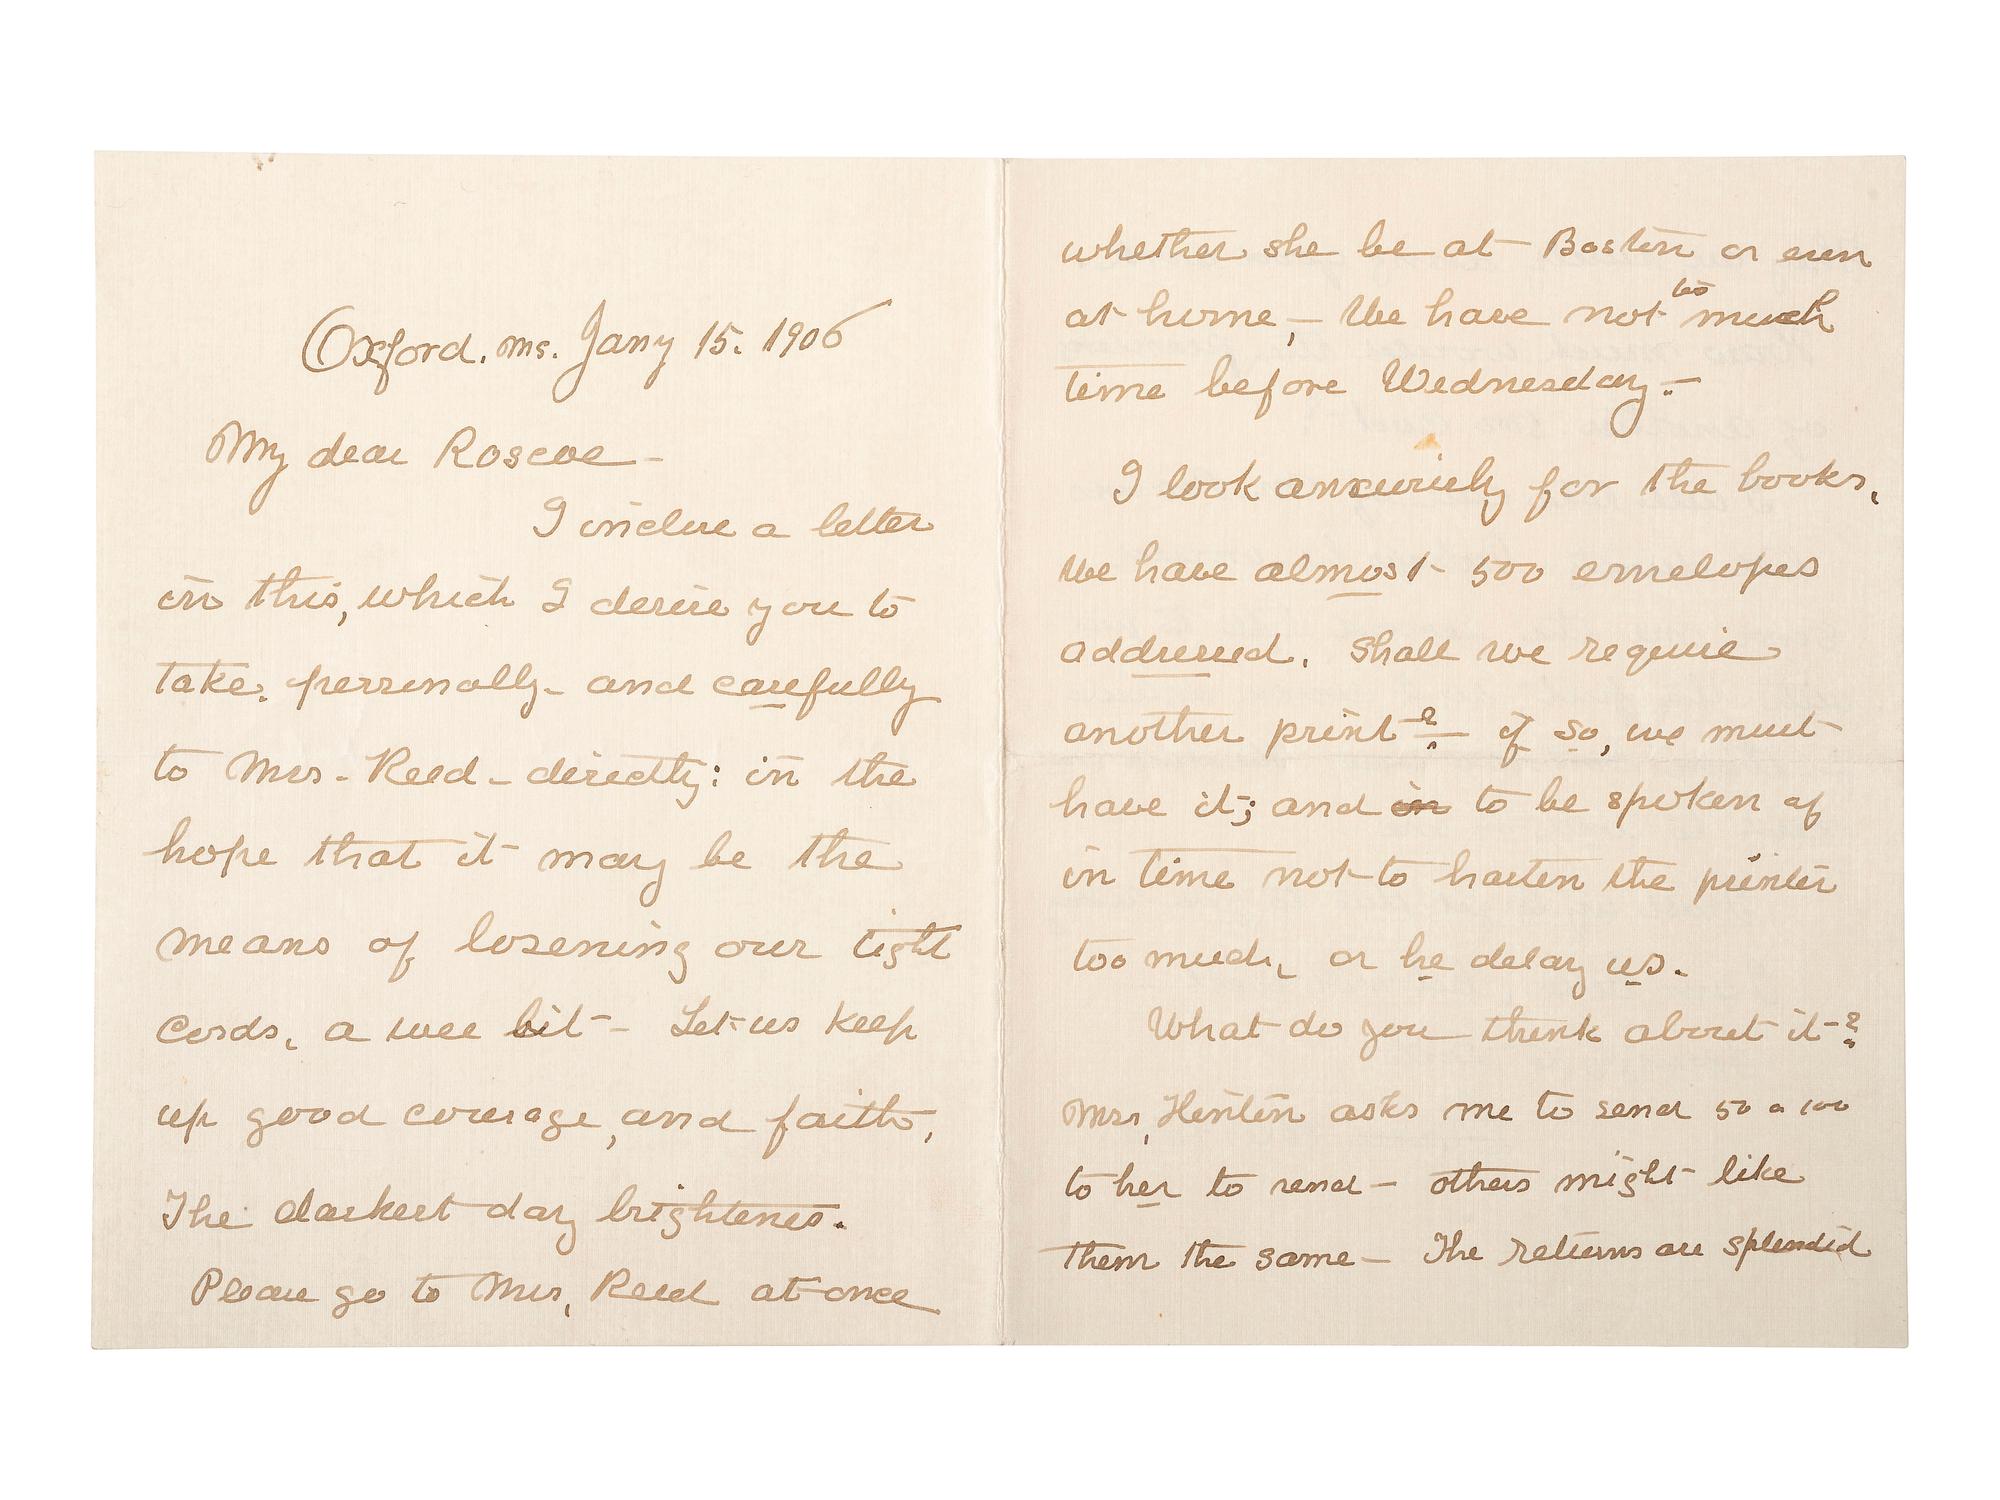 Oxford. Ms. Jany 15. 1906
My dear Roscoe –
I inclose a letter
in this, which I desire you to
take. personally – and carefully
to Mrs – Reed – directly: in the
hope that it may be the
means of losening our tight
cords, a wee bit – Let us keep
up good courage, and faith,
The darkest day brightens.
Please go to Mrs, Reed at once
whether she be at Boston or even
at home, – We have not too much
time before Wednesday. –
I look anxiously for the books,
We have almost 500 envelopes
addressed. Shall we require
another print? – if so, we must
have it; and in to be spoken of
in time not to hasten the printer
too much, or he delay us.
What do you think about it – ?
Mrs, Hinton asks me to send 50 a 100
to her to send – others might like
them the same – The returns are splendid